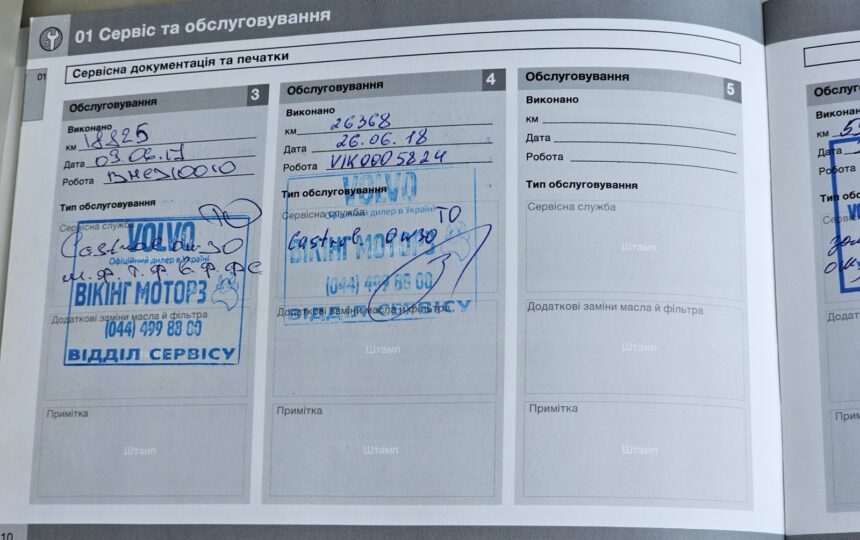 01 Сервіс та обслуговування
01
Сервісна документація та печатки
Обслуговування 3
Виконано
км 18825
Дата 09.06.17
Робота
Тип обслуговування
Сервісна служба
ТО
Castrol 0w30
м.ф. т.ф в.ф. ф.с
VOLVO
Офіційний дилер в Україні
ВІКІНГ МОТОРЗ
Додаткові заміни масла й фільтра
(044) 499 88 00
ВІДДІЛ СЕРВІСУ
Примітка
Штамп
Обслуговування 4
Виконано
км 26368
Дата 26.06.18
Робота VIK0005824
Тип обслуговування
VOLVO
Сервісна служба
Офіційний дилер в Україні
ТО
Castrol 0w30
ВІКІНГ МОТОРЗ
(044) 499 88 00
ВІДДІЛ СЕРВІСУ
Додаткові заміни масла й фільтра
Штамп
Примітка
Штамп
Обслуговування 5
Виконано
км
Дата
Робота
Тип обслуговування
Сервісна служба
Штамп
Додаткові заміни масла й фільтра
Штамп
Примітка
Штамп
Обслуг
Виконан
км
Дата
Робота
Тип обсл
Сервісн
Додатков
Примі
10